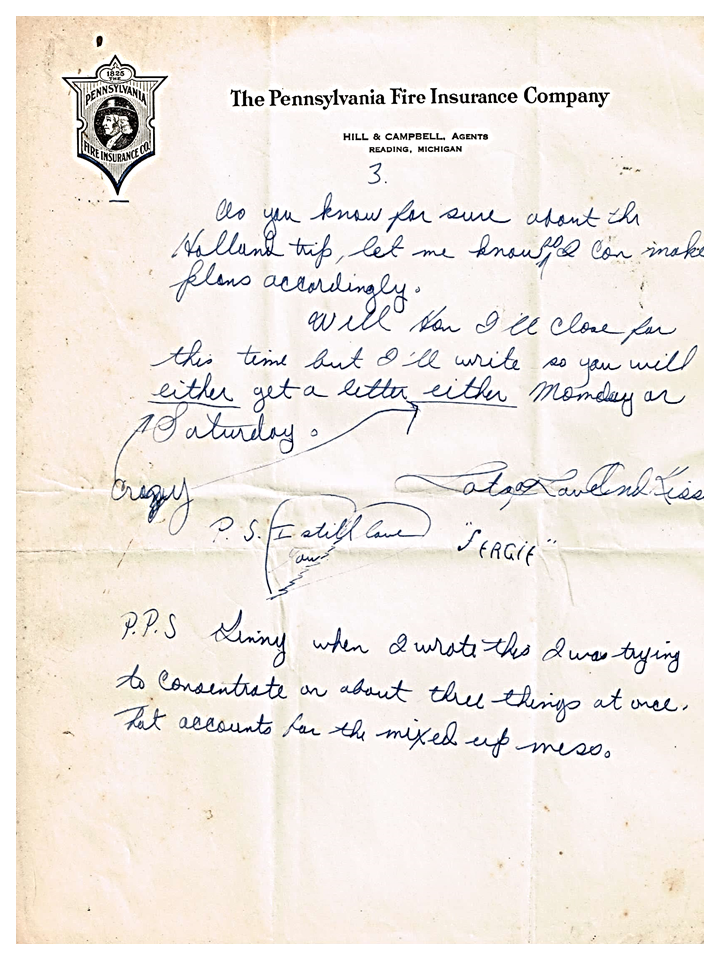 1825
THE
PENNSYLVANIA
FIRE INSURANCE CO.
The Pennsylvania Fire Insurance Company
HILL & CAMPBELL, AGENTS
READING, MICHIGAN
3.
do you know for sure about the
Holland trip, let me know if I can make
plans accordingly.
Well Hon I'll close for
this time but I'll write so you will
either get a letter either Monday or
Saturday.
crazy
Lots of Love and Kiss
P.S. I still love
you
"SERGIE"
P.P.S Ginny when I wrote this I was trying
to consentrate on about three things at once.
That accounts for the mixed up mess.